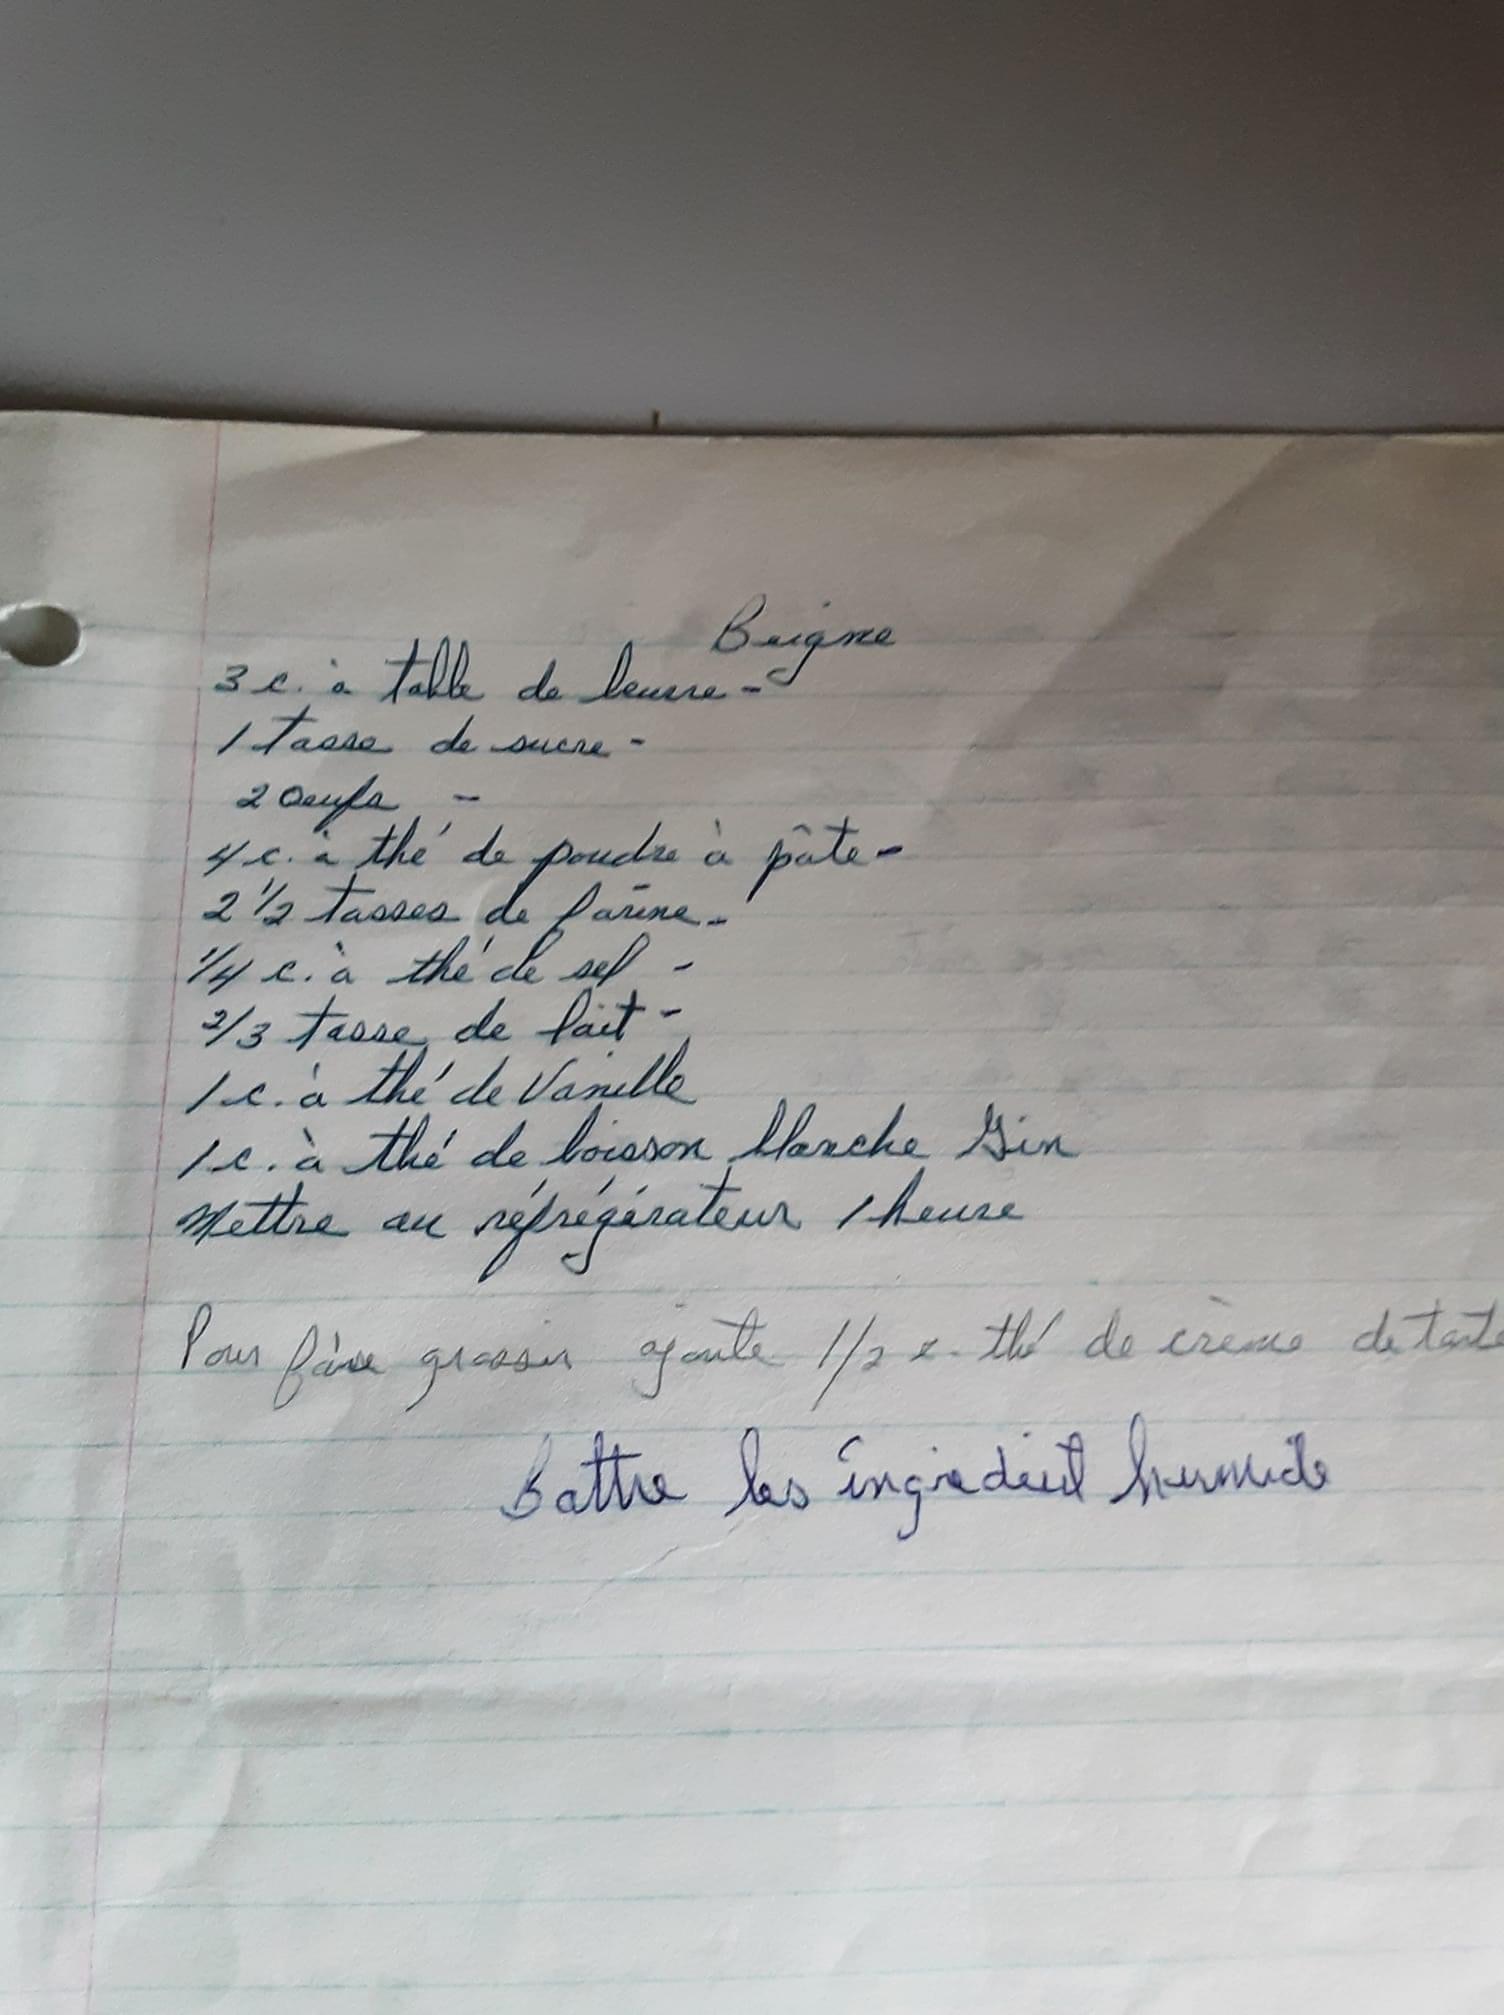 Beigne
3 c. à table de beurre -
1 tasse de sucre -
2 oeufs -
4 c. à thé de poudre à pâte -
2 1/2 tasses de farine -
1/4 c. à thé de sel -
2/3 tasse de lait -
1 c. à thé de Vanille
1 c. à thé de boisson blanche Gin
Mettre au réfrégérateur 1 heure
Pour faire grossir ajoute 1/2 c. thé de crème de tarte
Battre les ingredient humide